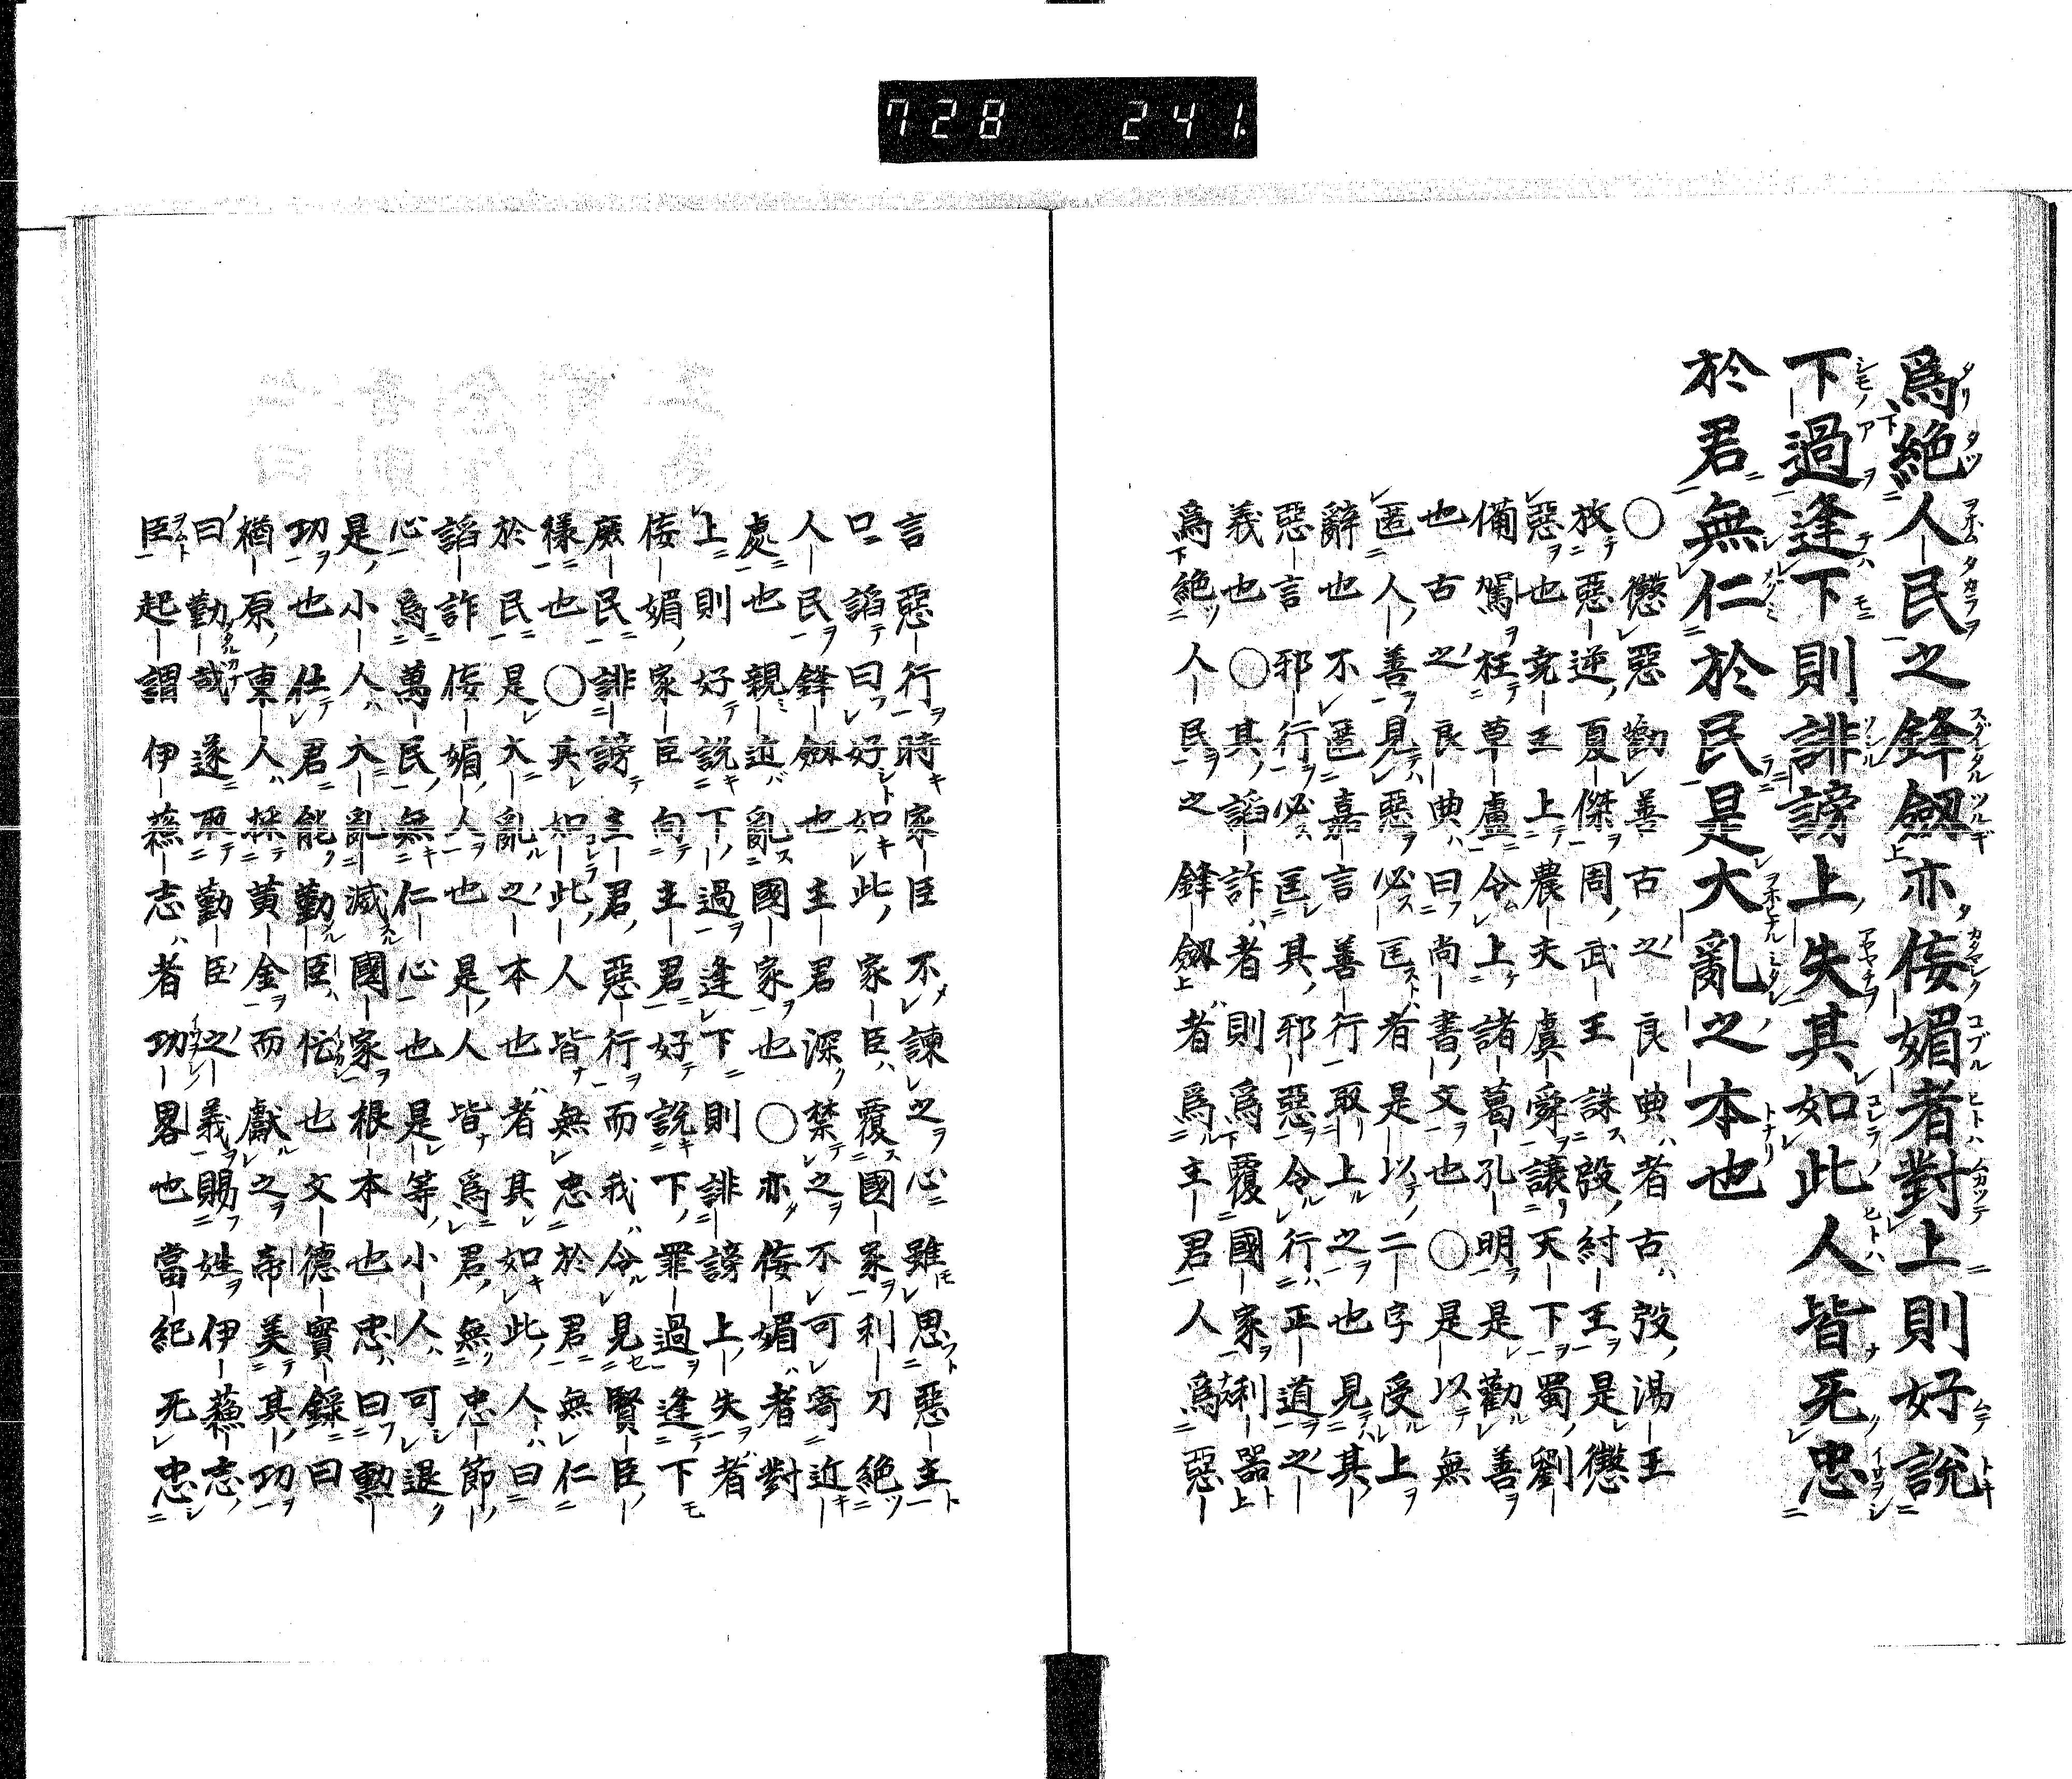 728 241.
爲絶人民之鋒劔亦侫媚者對上則好説
下過逢下則誹謗上失其如此人皆死忠
於君無仁於民是大亂之本也
○懲惡勸善古之良典者古殷湯王
放惡逆夏傑周武王誅殷紂王是懲
惡也堯王上農夫虞舜讓天下蜀劉
備駕枉草盧令上諸葛孔明是勸善
也古之良典曰尚書文也○是以無
匿人善見惡必匡者是以二字受上
辭也不匿嘉言善行取上之也見其
惡言邪行必匡其邪惡令行正道之
義也○其諂詐者則爲覆國家利器
爲絶人民之鋒劔者爲主君人爲惡
言惡行時家臣不諫之心雖思惡主
口諂曰好如此家臣覆國家利刀絶
人民鋒劔也主君深禁之不可寄近
處也親近亂國家也○亦侫媚者對
上則好説下過逢下則誹謗上失者
侫媚家臣向主君好説下罪過逢下
庶民誹謗主君惡行而我令見賢臣
樣也○其如此人皆無忠於君無仁
於民是大亂之本也者其如此人曰
諂詐侫媚人也是人皆爲君無忠節
心爲萬民無仁心也是等小人可退
是小人大亂滅國家根本也忠曰勲
功也仕君能勤臣忠也文德實錄曰
楢原東人採黄金而獻之帝美其功
曰勤哉遂取勤臣之義賜姓伊蘓志
臣起謂伊蘓志者功畧也當紀死忠